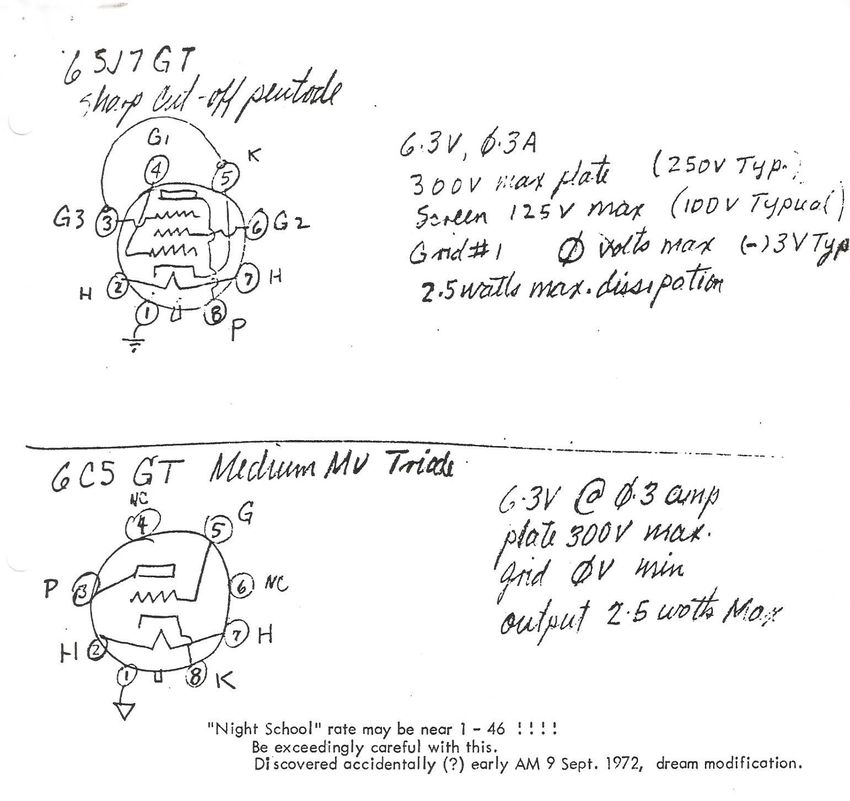 6SJ7 GT
sharp cut-off pentode
G1
K
4
5
G3 3
6 G2
H 2
7 H
1
8
P
6.3V, 0.3A
300V max plate (250V Typ.)
Screen 125V max (100V Typical)
Grid #1 0 volts max (-)3V Typ
2.5 watts max. dissipation
6C5 GT Medium MU Triode
NC
4
5 G
P 3
6 NC
H 2
7 H
1
8 K
6.3V @ 0.3 amp
plate 300V max.
grid 0V min
output 2.5 watts Max
"Night School" rate may be near 1 - 46 ! ! ! !
Be exceedingly careful with this.
Discovered accidentally (?) early AM 9 Sept. 1972, dream modification.